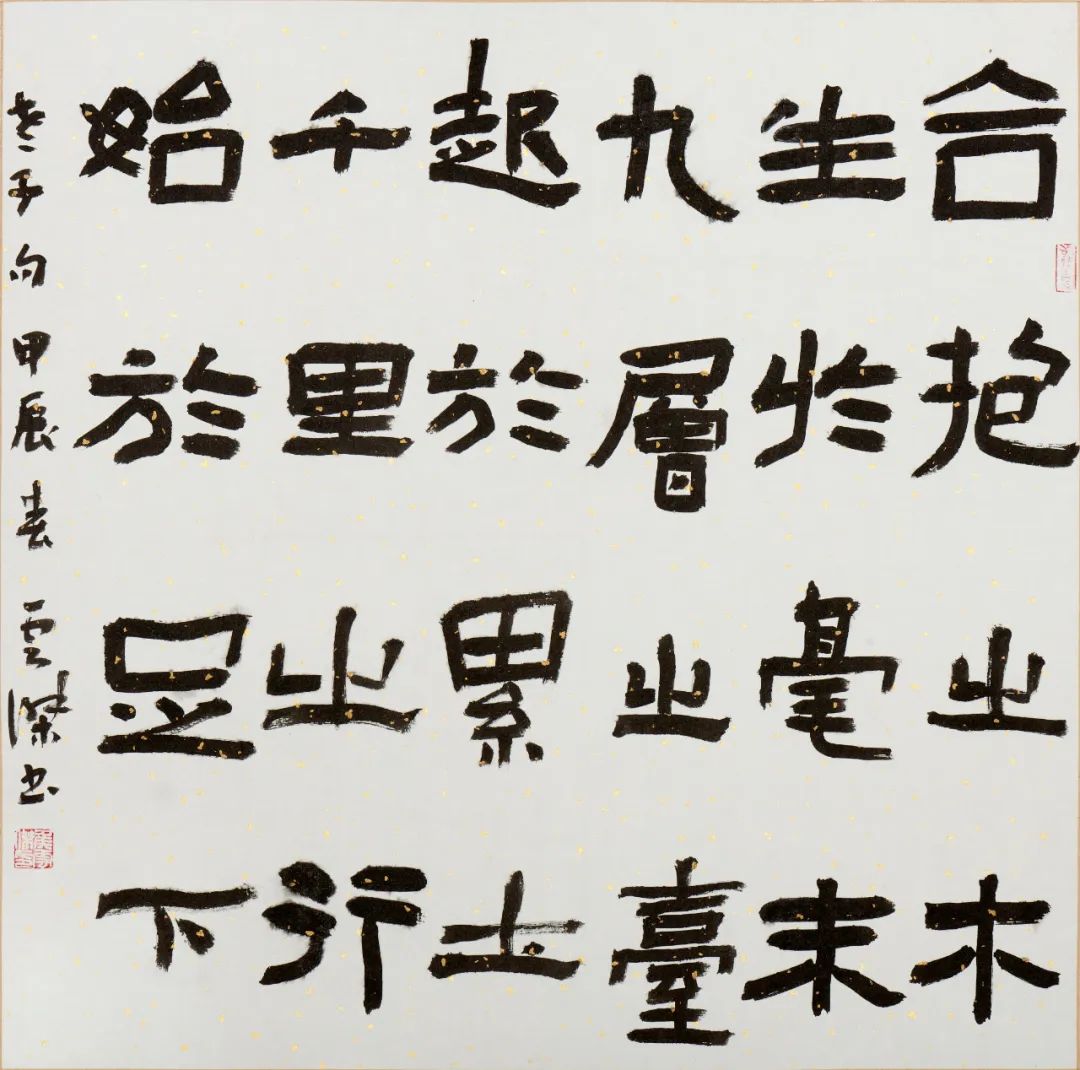 合抱之木
生於毫末
九層之臺
起於累土
千里之行
始於足下
老子句 甲辰春 雲傑書